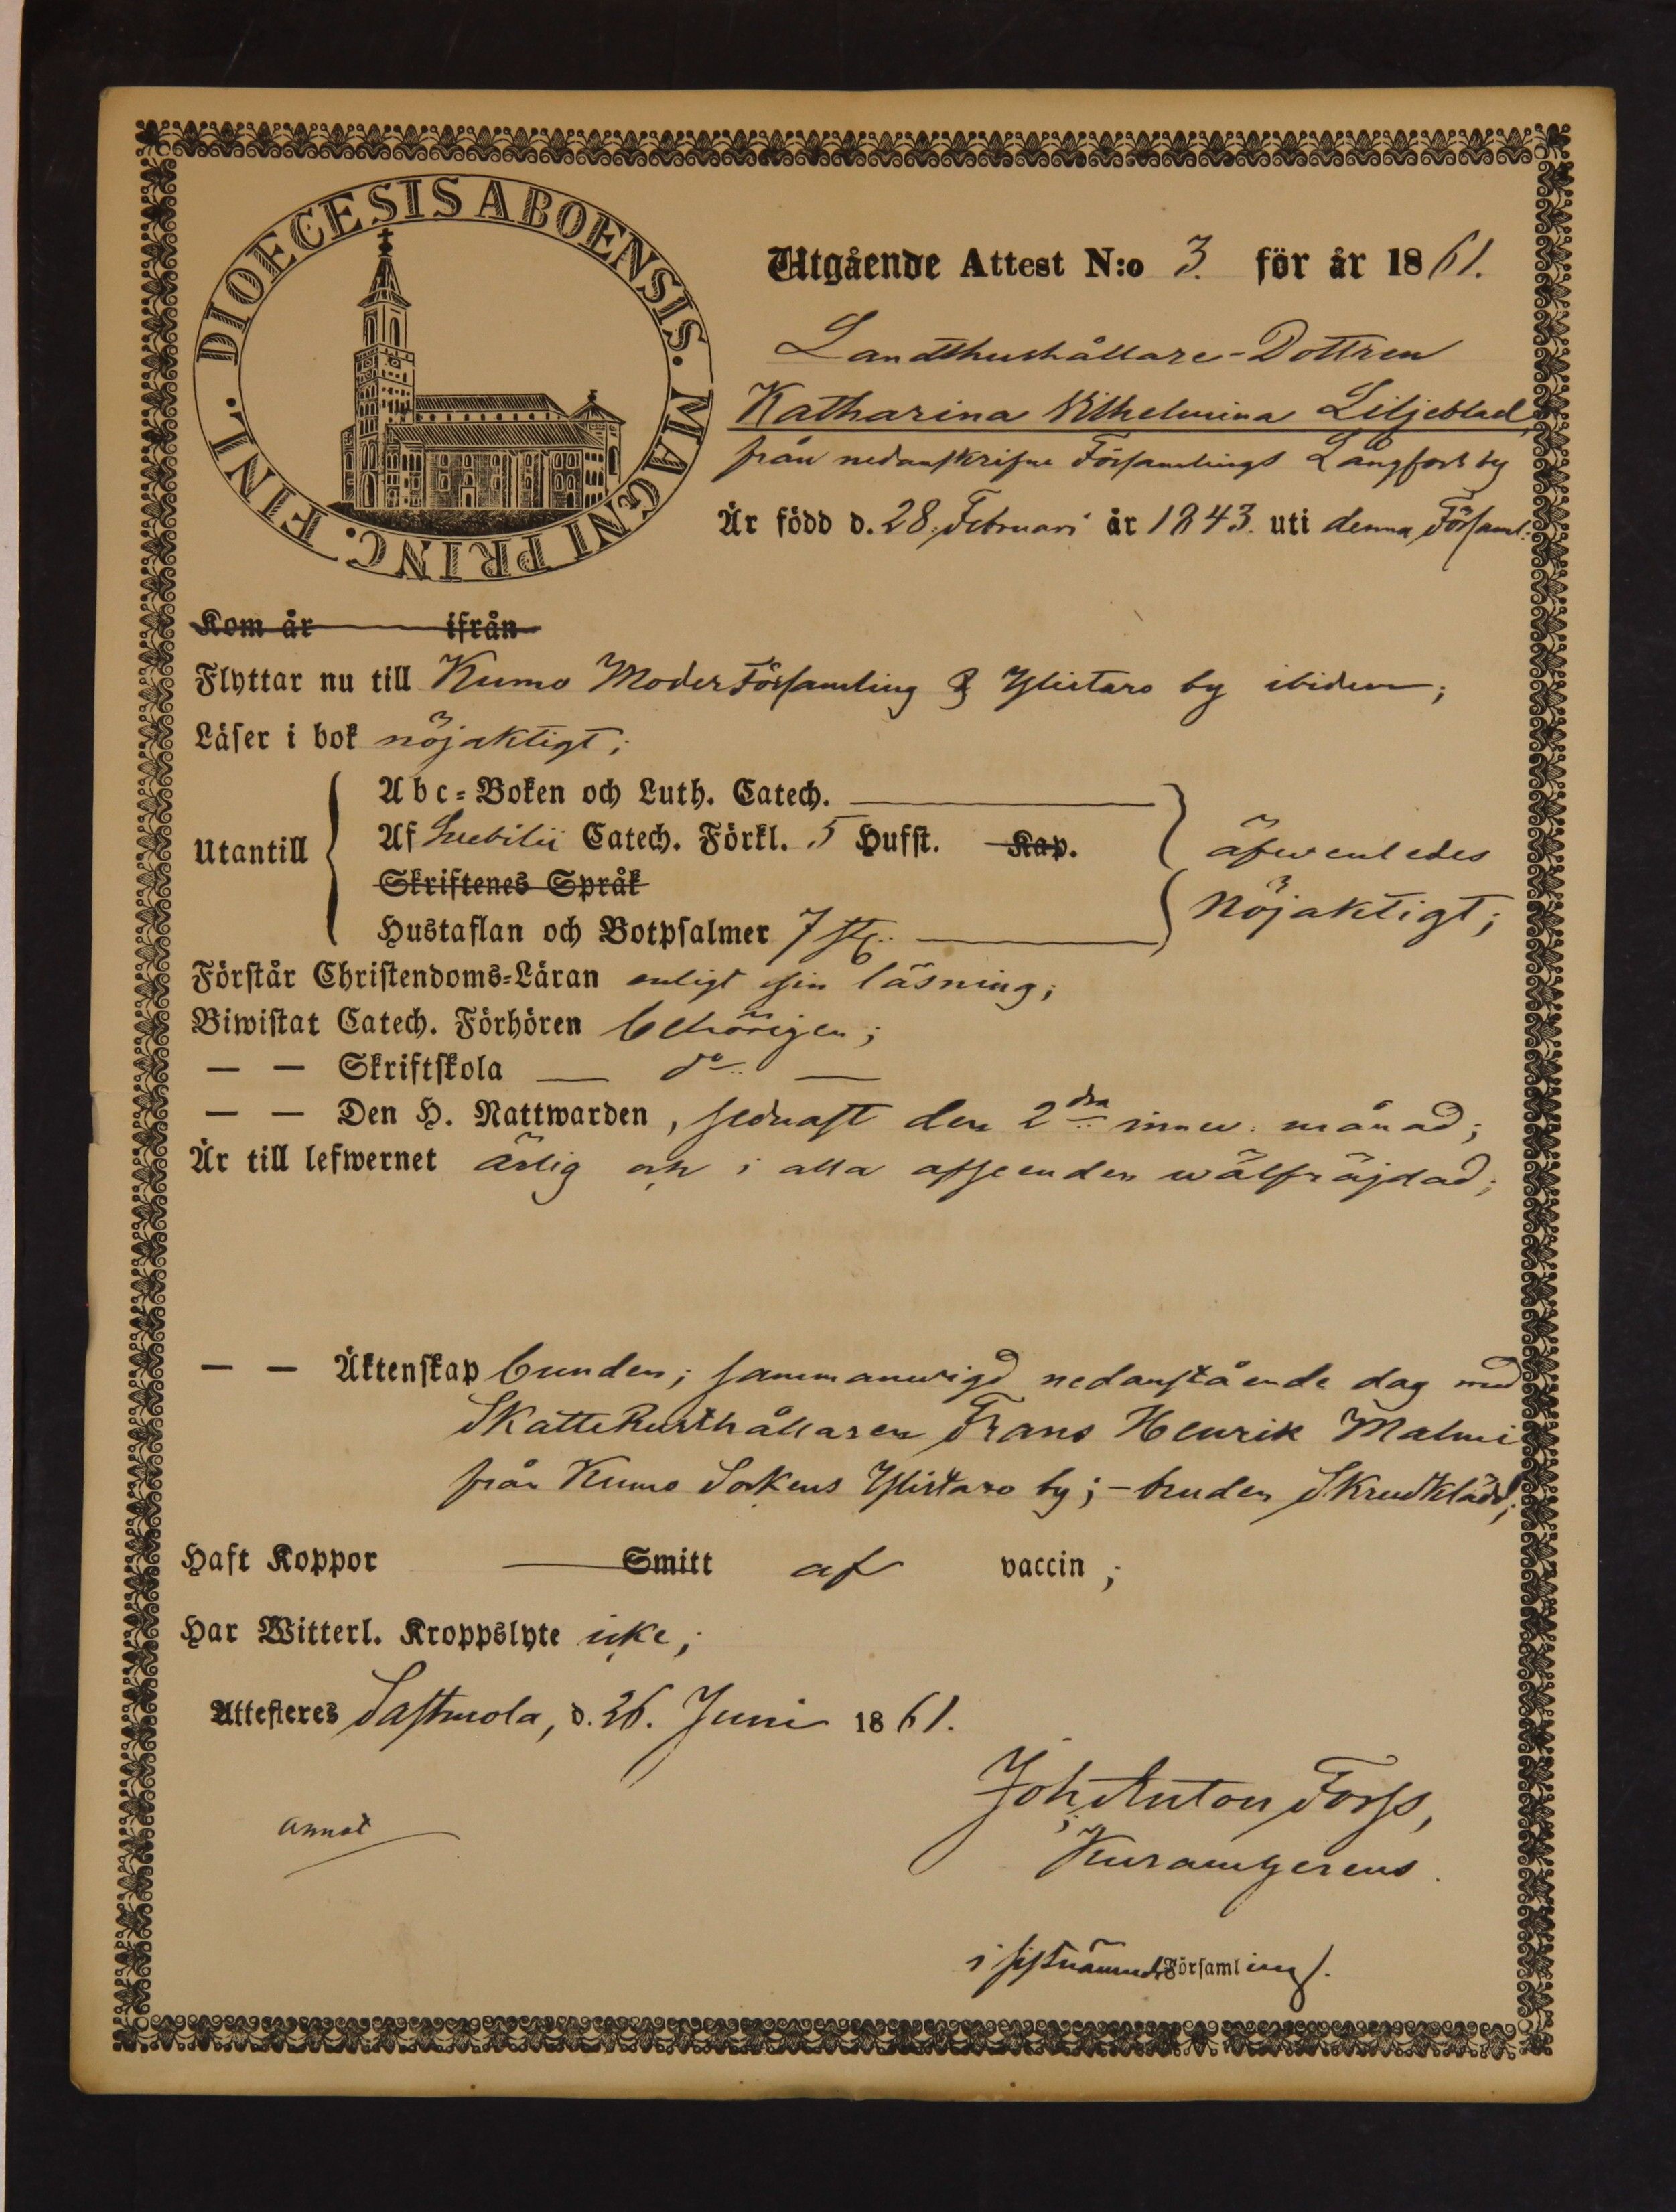 DIOECESIS ABOENSIS. MAGNI PRINC. FINL.
Utgående Attest N:o 3. för år 1861.
Landthushållare-Dottren
Katharina Vilhelmina Liljeblad,
från nedanskrifne Församlings Långfors by
Är född d. 28. Februari år 1843. uti denna Församl:
Kom år ifrån
Flyttar nu till Kumo Moder Församling & Ylistaro by ibidem;
Läser i bok nöjaktigt;
Utantill
Abc-Boken och Luth. Catech.
Af Svebilii Catech. Förkl. 5 Hufst. Kap.
Skriftenes Språk
Hustaflan och Botpsalmer 7 st.
äfwenledes
nöjaktigt;
Förstår Christendoms-Läran enligt sin läsning;
Biwistat Catech. Förhören behörigen;
— — Skriftskola — do —
— — Den H. Nattwarden, sednast den 2dra innew. månad;
Är till lefwernet ärlig och i alla afseenden wälfräjdad;
— — Äktenskap bunden; sammanwigd nedanstående dag med
Skatte Rusthållaren Frans Henrik Malmi
från Kumo Sockens Ylistaro by; – bruden Skrudklädd;
Haft Koppor Smitt af vaccin;
Har Witterl. Kroppslyte icke;
Attesteres Sastmola, d. 26. Juni 1861.
Joh. Anton Forss,
annot
Kuramgerens.
i sistnämnde Församling.